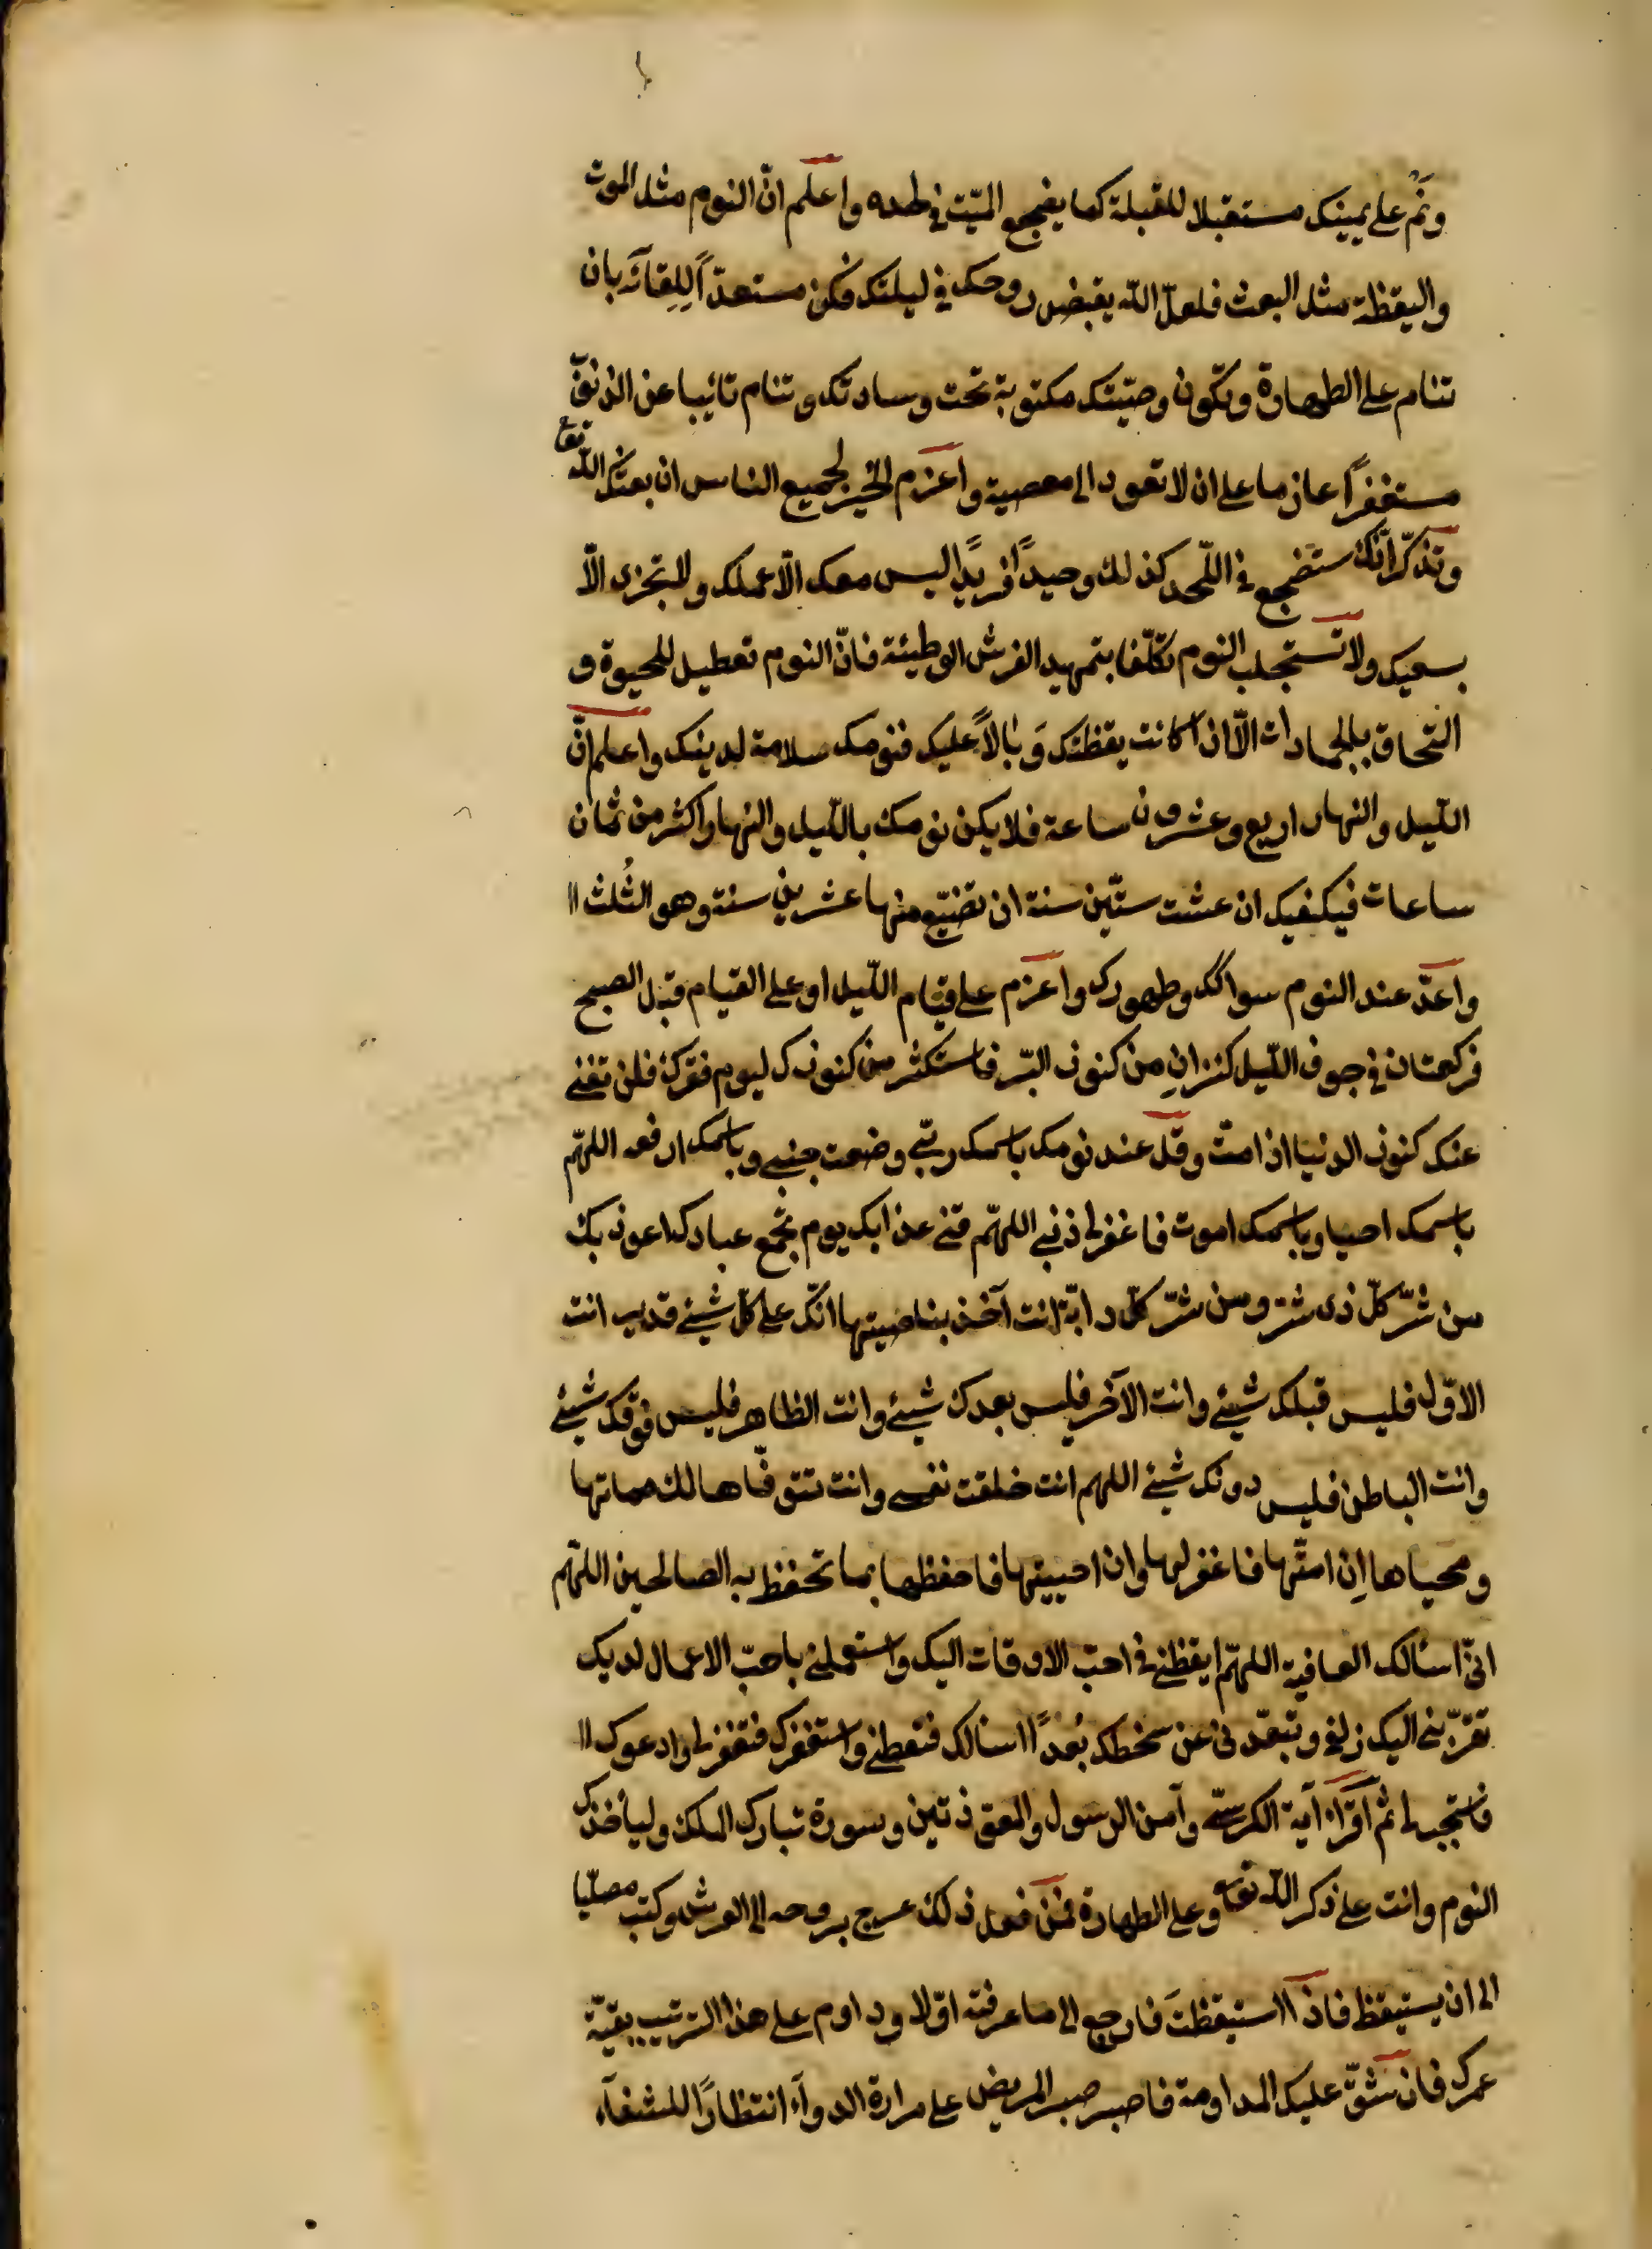 ونَم على يمينك مستقبلا للقبلة كما يضجع الميّت فى لحده واعلم انّ النوم مثل الموت
واليقظة مثل البعث فلعلّ الله يقبض روحك فى ليلتك فكن مستعدّاً لِلِقائه بان
تنام على الطهارة وتكون وصيّتك مكتوبة تحت وسادتك وتنام تائبا عن الذنوب
مستغفراً عازما على ان لا تعود الى معصية واعزم الخير لجميع الناس ان بعثك الله تع
وتذكّر انّك ستضجع فى اللّحد كذلك وحيداً فريداً ليس معك الّا عملك ولا تجزى الّا
بسعيك ولا تستجلب النوم تكلّفا بتمهيد الفرش الوطيئة فانّ النوم تعطيل للحيوة و
التحاق بالجمادات الّا ان اكانت يقظتك وَبالاً عليك فنومك سلامة لدينك واعلم انّ
اللّيل والنهار اربع وعشرون ساعة فلا يكن نومك باللّيل والنهار اكثر من ثمان
ساعات فيكفيك ان عشت ستّين سنة ان تضيّع منها عشرين سنة وهو الثُلث
واعدّ عند النوم سواكك وطهورك واعزم على قيام اللّيل او على القيام قبل الصبح
فركعتان فى جوف اللّيل كنزانِ من كنوز البّر فاستكثر من كنوزك ليوم فقرك فلن تغنى
عنك كنوز الدنيا اذا متّ وقل عند نومك باسمك ربّى وضعت جنبى وباسمك ارفعه اللهمّ
باسمك احيا وباسمك اموت فاغفر لى ذنبى اللهمّ قنى عذابك يوم تجمع عبادك اعوذ بك
من شرّ كلّ ذى شرّ ومن شرّ كلّ دابّة انت آخذ بناصيتها انّك على كلّ شيئ قدير انت
الاوّل فليس قبلك شيئ وانت الآخر فليس بعدك شيئ وانت الظاهر فليس فوقك شيئ
وانت الباطن فليس دونك شيئ اللهم انت خلقت نفسى وانت تتوفّاها لك مماتها
ومحياها اِن امتّها فاغفر لها وان احييتها فاحفظها بما تحفظ به الصالحين اللهمّ
انّى اسئالك العافية اللهمّ ايقظنى فى احبّ الاوقات اليك واستعملنى باحبّ الاعمال لديك
تقرّبنى اليك زلفى وتبعّدنى عن سخطك بُعداً اسالك فتعطنى واستغفرك فتغفر لى وادعوك
فاستجب لى ثم اقرأ آية الكرسىّ وآمن الرسول والمعوّذتين وسورة تبارك الملك وليأخذك
النوم وانت على ذكر الله تع وعلى الطهارة فمن فعل ذلك عرج بروحه الى العرش وكتب مصلّيا
الى ان يستيقظ فاذا استيقظتَ فارجع الى ما عرفته اوّلا وداوم على هذا الترتيب بقيّة
عمرك فان شقّ عليك المداومة فاصبر صبر المريض على مرارة الدوآء انتظاراً للشفآء